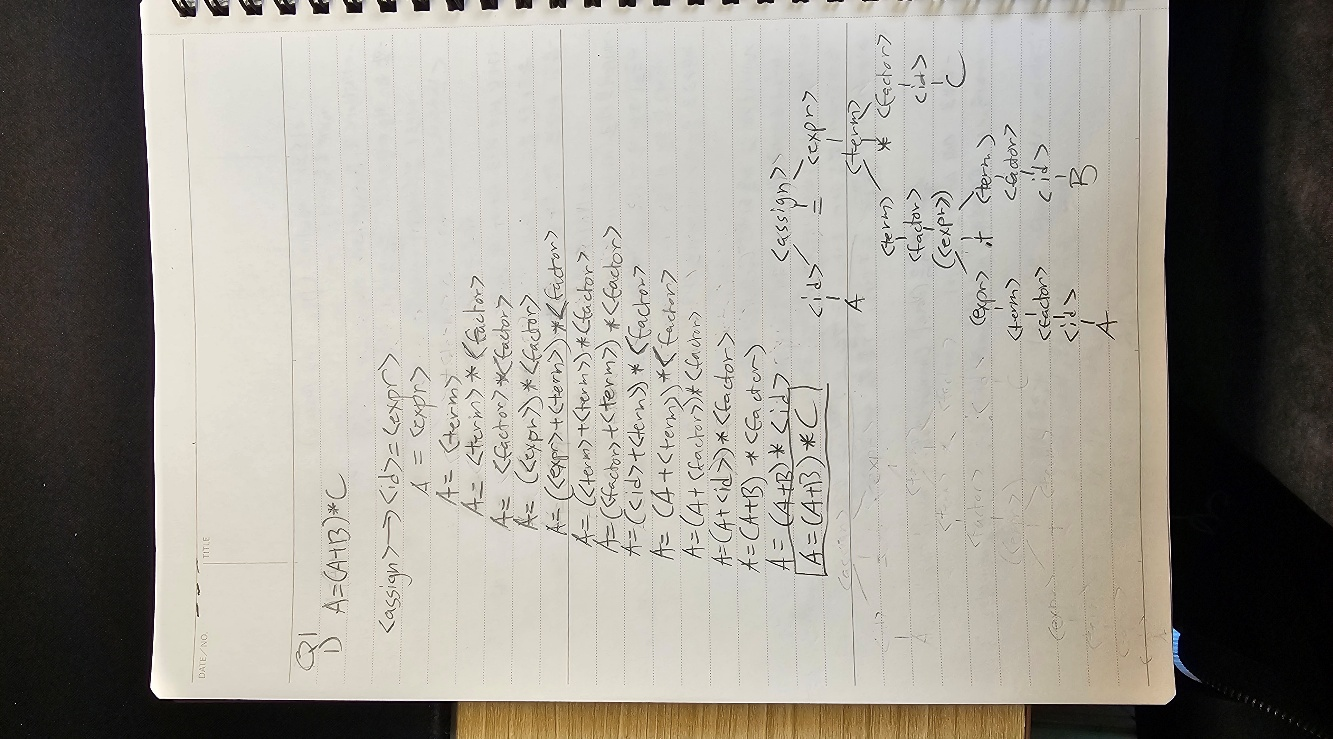 DATE / NO.
TITLE
Q1
1) A=(A+B)*C
<assign> → <id>=<expr>
A = <expr>
A= <term>
A= <term> * <factor>
A= <factor> *<factor>
A= (<expr>) * <factor>
A= (<expr>+<term>) * <factor>
A= (<term>+<term>)*<factor>
A=(<factor>+<term>) *<factor>
A=(<id>+<term>) * <factor>
A= (A+<term>) *<factor>
A=(A+<factor>)*<factor>
A=(A+<id>)*<factor>
A=(A+B) *<factor>
A= (A+B) * <id>
A=(A+B) * C
<assign>
<id> = <expr>
A <term>
<term> * <factor>
<factor> <id>
(<expr>) C
<expr> + <term>
<term> <factor>
<factor> <id>
<id> B
A